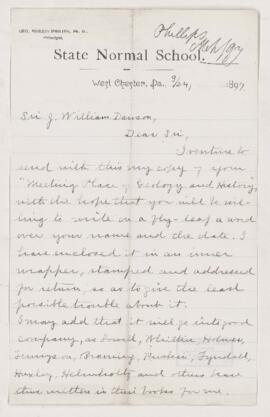 GEO. MORRIS PHILIPS, PH. D.,
Principal.
Phillips
State Normal School,
West Chester, Pa., 9/24, 1897
Sir J. William Dawson,
Dear Sir,
I venture to
send with this my copy of your
"Meeting Place of Geology and History,"
with the hope that you will be wil-
ling to write on a fly-leaf a word
over your name and the date. I
have enclosed it in an inner
wrapper, stamped and addressed
for return, so as to give the least
possible trouble about it.
I may add that it will go into good
company, as Lowell, Whittier, Holmes,
Tennyson, Browning, Ruskin, Tyndall,
Huxley, Helmholtz and others have
thus written in their books for me.